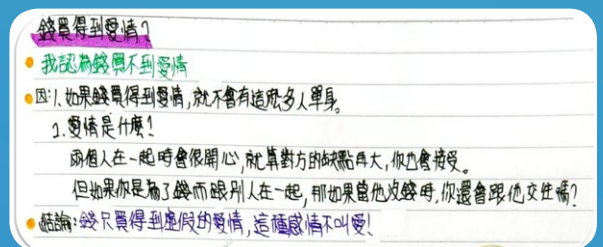 錢買得到愛情?
我認為錢買不到愛情
因:1.如果錢買得到愛情,就不會有這麼多人單身。
2.愛情是什麼?
兩個人在一起時會很開心,就算對方的缺點再大,你也會接受。
但如果你是為了錢而跟別人在一起,那如果當他沒錢時,你還會跟他交往嗎?
結論:錢只買得到虛假的愛情,這種感情不叫愛!